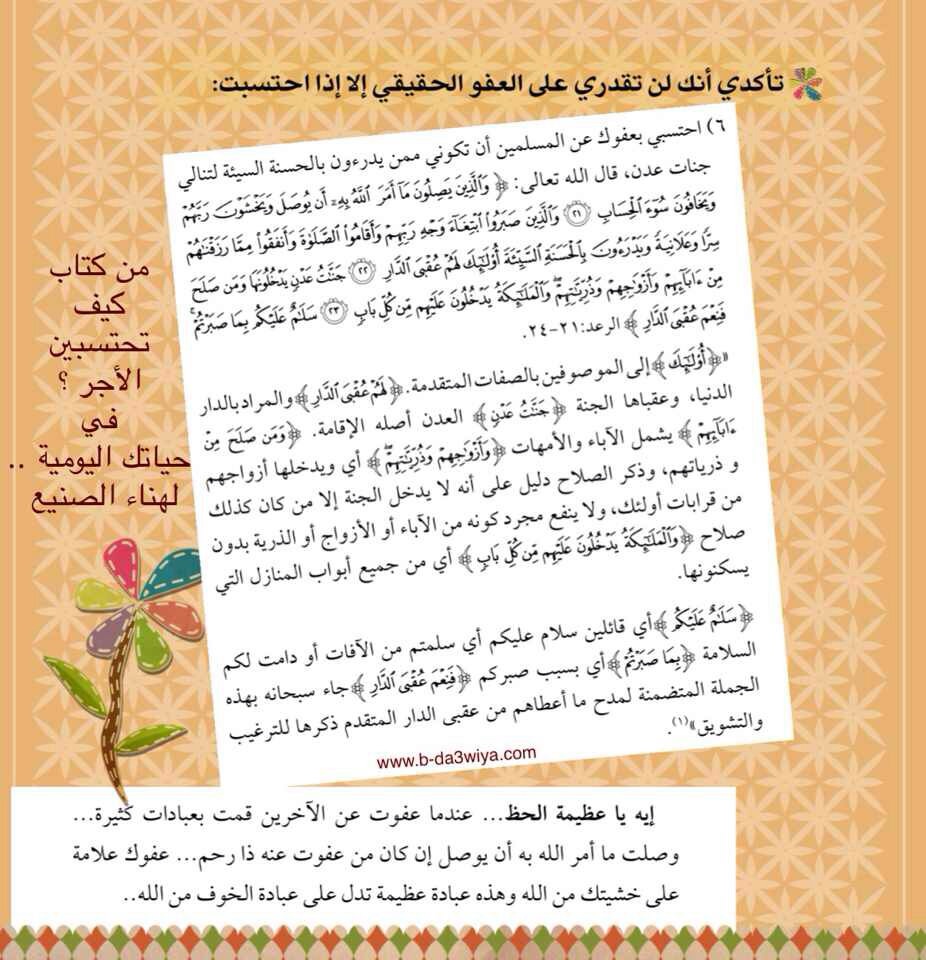 تأكدي أنك لن تقدري على العفو الحقيقي إلا إذا احتسبت:
٦) احتسبي بعفوك عن المسلمين أن تكوني ممن يدرءون بالحسنة السيئة لتنالي
جنات عدن، قال الله تعالى: ﴿ وَٱلَّذِينَ يَصِلُونَ مَآ أَمَرَ ٱللَّهُ بِهِۦٓ أَن يُوصَلَ وَيَخْشَوْنَ رَبَّهُمْ
وَيَخَافُونَ سُوٓءَ ٱلْحِسَابِ ۝٢١ وَٱلَّذِينَ صَبَرُوا۟ ٱبْتِغَآءَ وَجْهِ رَبِّهِمْ وَأَقَامُوا۟ ٱلصَّلَوٰةَ وَأَنفَقُوا۟ مِمَّا رَزَقْنَٰهُمْ
سِرًّا وَعَلَانِيَةً وَيَدْرَءُونَ بِٱلْحَسَنَةِ ٱلسَّيِّئَةَ أُو۟لَٰٓئِكَ لَهُمْ عُقْبَى ٱلدَّارِ ۝٢٢ جَنَّٰتُ عَدْنٍ يَدْخُلُونَهَا وَمَن صَلَحَ
مِنْ ءَابَآئِهِمْ وَأَزْوَٰجِهِمْ وَذُرِّيَّٰتِهِمْ ۖ وَٱلْمَلَٰٓئِكَةُ يَدْخُلُونَ عَلَيْهِم مِّن كُلِّ بَابٍ ۝٢٣ سَلَٰمٌ عَلَيْكُم بِمَا صَبَرْتُمْ ۚ
فَنِعْمَ عُقْبَى ٱلدَّارِ ﴾ الرعد:٢١-٢٤.
«﴿أُو۟لَٰٓئِكَ﴾ إلى الموصوفين بالصفات المتقدمة. ﴿لَهُمْ عُقْبَى ٱلدَّارِ﴾ والمراد بالدار
الدنيا، وعقباها الجنة ﴿جَنَّٰتُ عَدْنٍ﴾ العدن أصله الإقامة. ﴿وَمَن صَلَحَ مِنْ
ءَابَآئِهِمْ﴾ يشمل الآباء والأمهات ﴿وَأَزْوَٰجِهِمْ وَذُرِّيَّٰتِهِمْ ۖ﴾ أي ويدخلها أزواجهم
و ذرياتهم، وذكر الصلاح دليل على أنه لا يدخل الجنة إلا من كان كذلك
من قرابات أولئك، ولا ينفع مجرد كونه من الآباء أو الأزواج أو الذرية بدون
صلاح ﴿وَٱلْمَلَٰٓئِكَةُ يَدْخُلُونَ عَلَيْهِم مِّن كُلِّ بَابٍ﴾ أي من جميع أبواب المنازل التي
يسكنونها.
﴿سَلَٰمٌ عَلَيْكُم﴾ أي قائلين سلام عليكم أي سلمتم من الآفات أو دامت لكم
السلامة ﴿بِمَا صَبَرْتُمْ﴾ أي بسبب صبركم ﴿فَنِعْمَ عُقْبَى ٱلدَّارِ﴾ جاء سبحانه بهذه
الجملة المتضمنة لمدح ما أعطاهم من عقبى الدار المتقدم ذكرها للترغيب
والتشويق»(١).
www.b-da3wiya.com
من كتاب
كيف
تحتسبين
الأجر ؟
في
حياتك اليومية ..
لهناء الصنيع
إيه يا عظيمة الحظ... عندما عفوت عن الآخرين قمت بعبادات كثيرة...
وصلت ما أمر الله به أن يوصل إن كان من عفوت عنه ذا رحم... عفوك علامة
على خشيتك من الله وهذه عبادة عظيمة تدل على عبادة الخوف من الله..